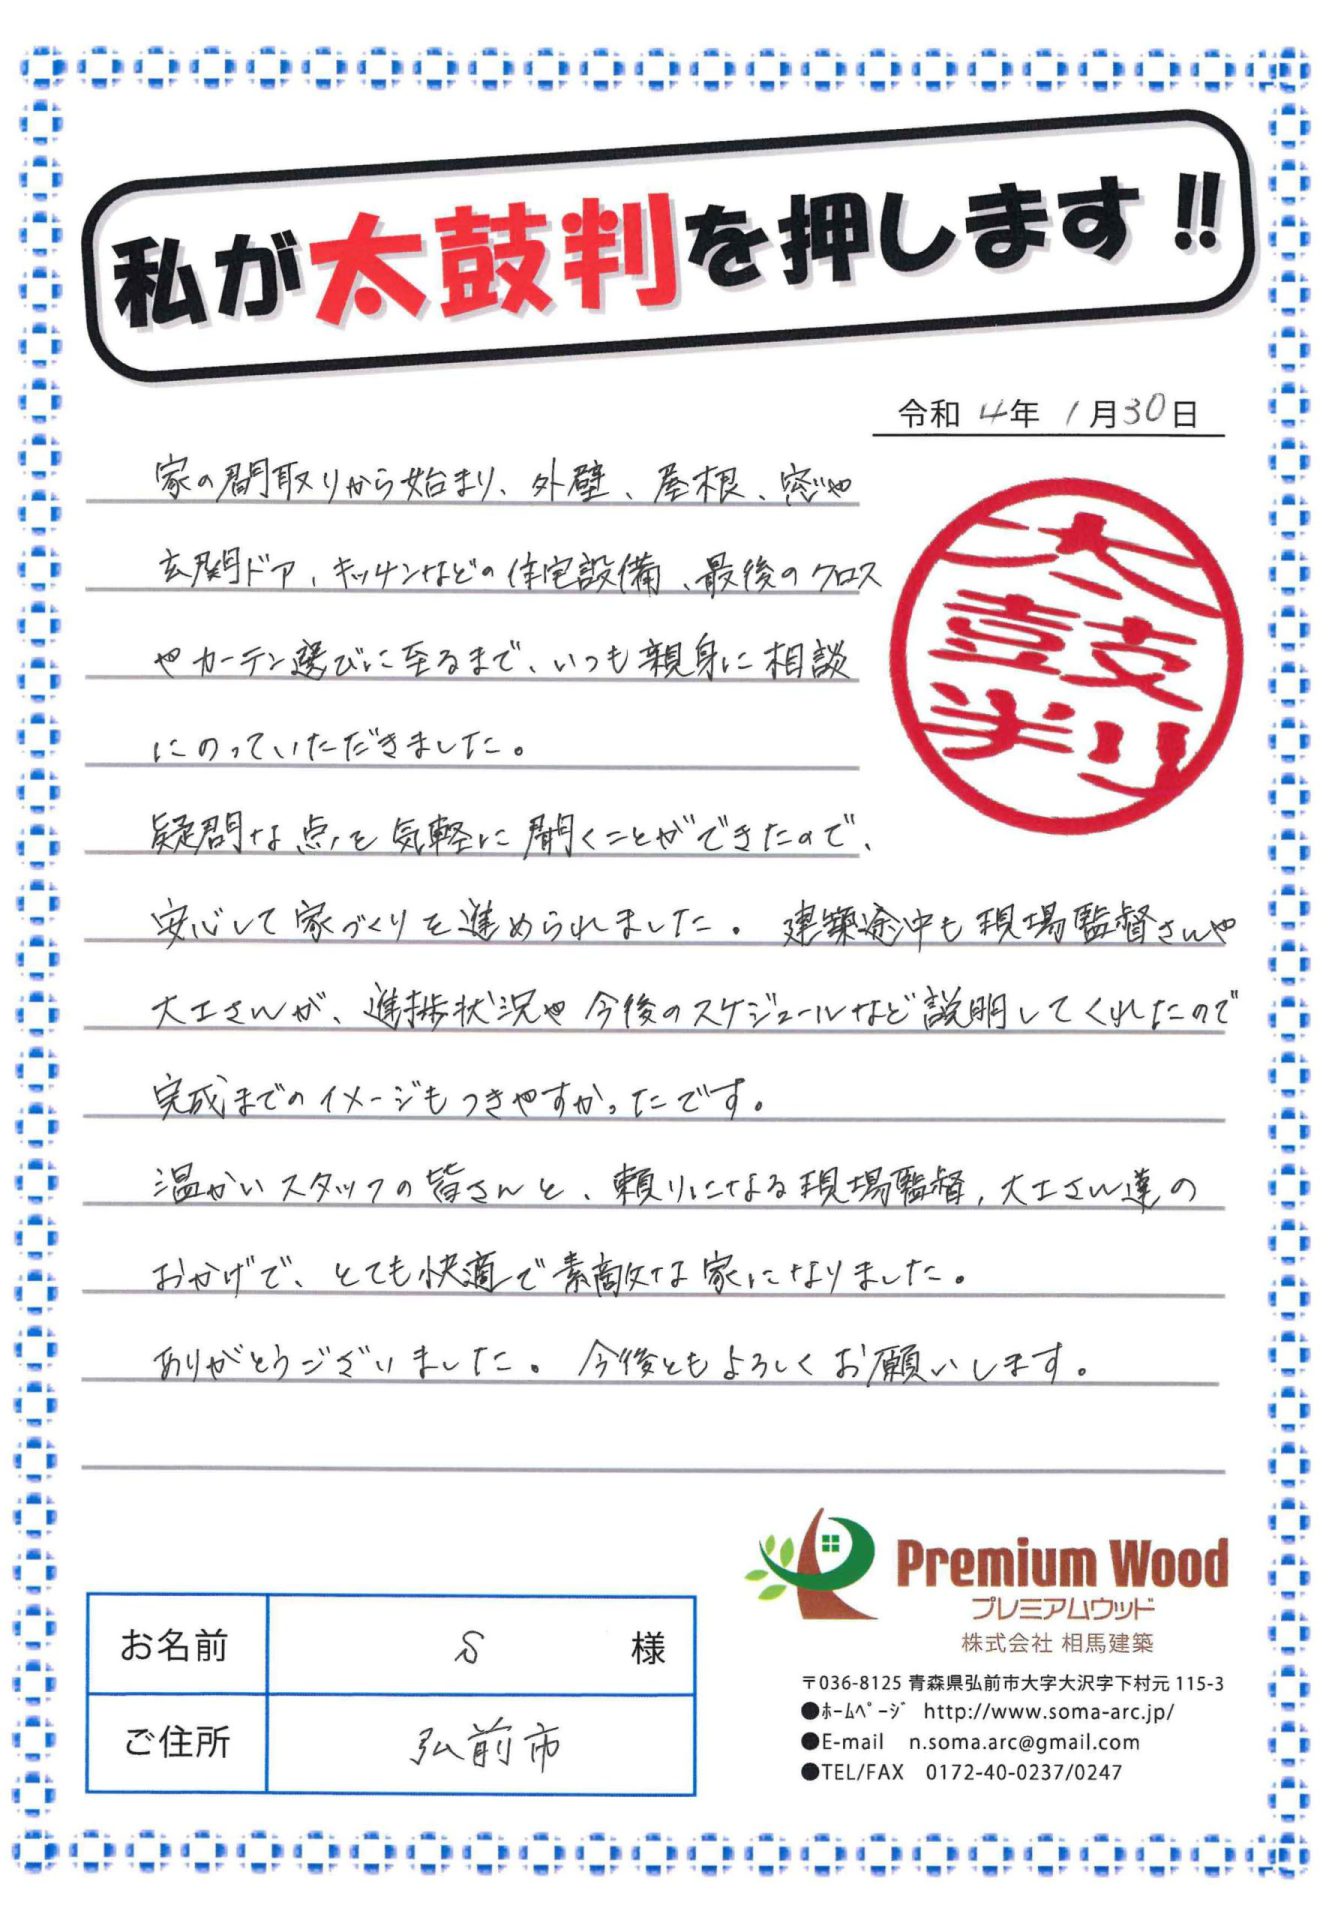 私が太鼓判を押します!!
令和 4年 1月30日
家の間取りから始まり、外壁、屋根、窓や
玄関ドア、キッチンなどの住宅設備、最後のクロス
やカーテン選びに至るまで、いつも親身に相談
にのっていただきました。
疑問な点を気軽に聞くことができたので、
安心して家づくりを進められました。建築途中も現場監督さんや
大工さんが、進捗状況や今後のスケジュールなど説明してくれたので
完成までのイメージもつきやすかったです。
温かいスタッフの皆さんと、頼りになる現場監督、大工さん達の
おかげで、とても快適で素敵な家になりました。
ありがとうございました。今後ともよろしくお願いします。
太
鼓
判
Premium Wood
プレミアムウッド
株式会社 相馬建築
〒036-8125 青森県弘前市大字大沢字下村元 115-3
●ﾎｰﾑﾍﾟｰｼﾞ http://www.soma-arc.jp/
●E-mail n.soma.arc@gmail.com
●TEL/FAX 0172-40-0237/0247
お名前 S 様
ご住所 弘前市